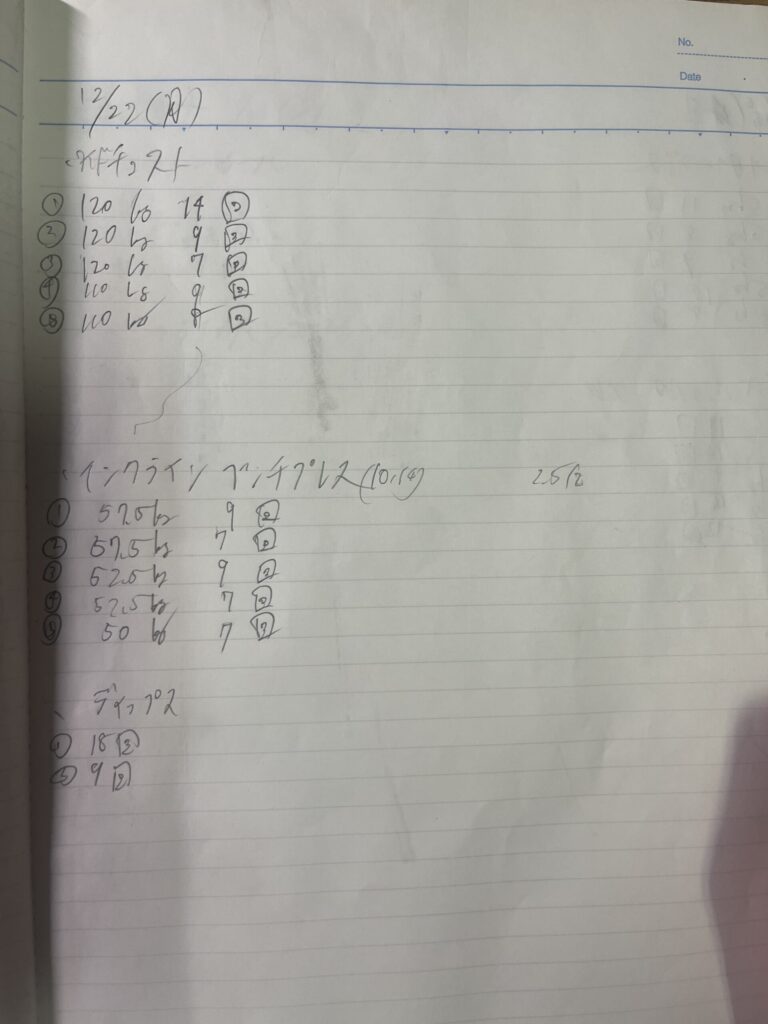 No.
Date
12/22(月)
・ベストチェスト
① 120 kg 14 ③
② 120 kg 9 ②
③ 120 kg 7 ②
④ 110 kg 9 ②
⑤ 110 kg 8 ③
・インクラインベンチプレス
① 57.5kg 9 ②
② 57.5kg 7 ②
③ 52.5kg 9 ②
④ 52.5kg 7 ②
⑤ 50 kg 7 ②
・ディップス
① 18 ②
② 9 ②